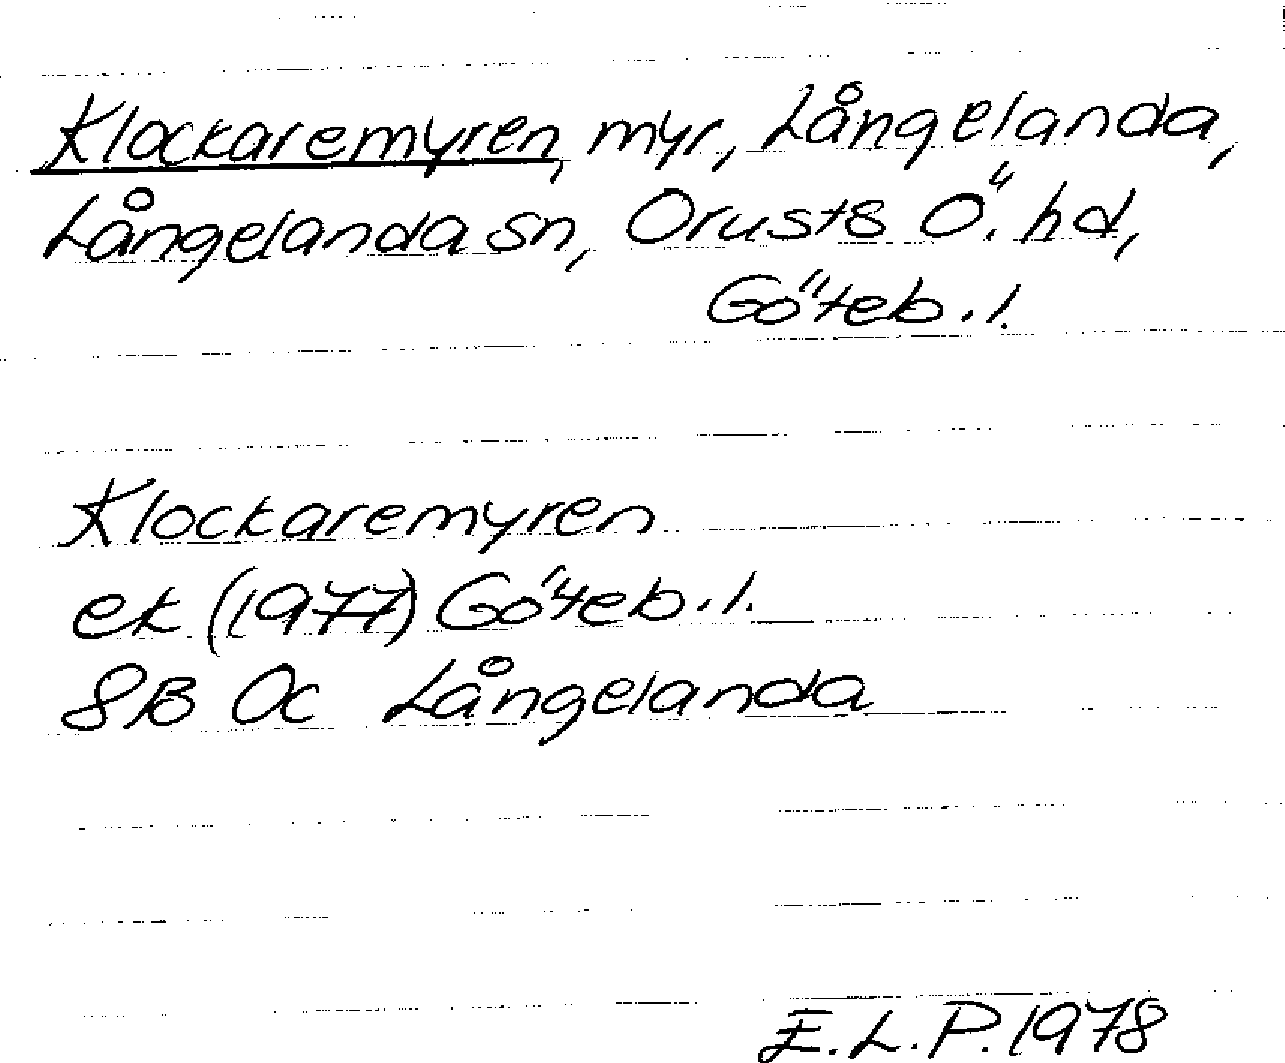 Klockaremyren, myr, Långelanda,
Långelanda sn, Orusts Ö. hd,
Göteb. l.
Klockaremyren
ek (1977) Göteb. l.
8B 0c Långelanda
E. L. P. 1978